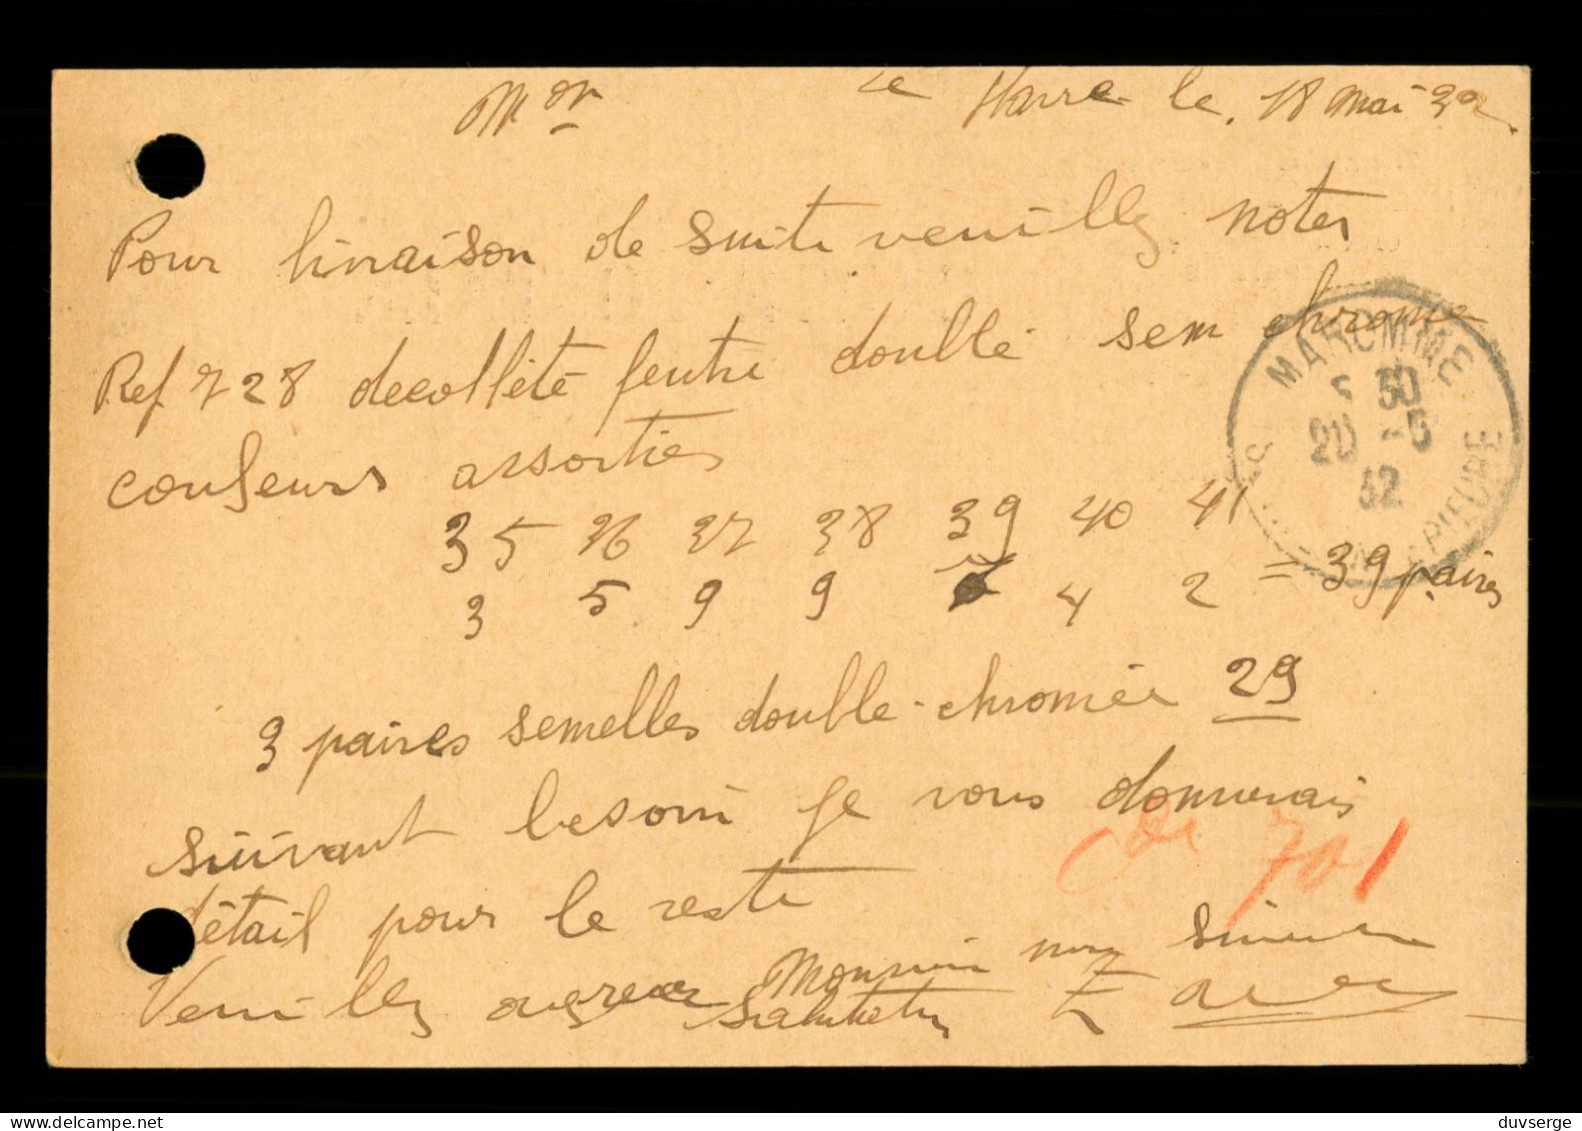 Mon Le Havre le, 18 mai 32.
Pour livraison de suite veuillez noter
Ref 728 decolleté feutre doublé sem chrome
couleurs assorties
35 36 37 38 39 40 41
3 5 9 9 4 2 = 39 paires
3 paires semelles double chromée 29
suivant besoin je vous donnerais
détail pour le reste
Cde 701
Veuillez agreer Monsieur mes sinceres
Salutations
MAROMME
5 30
20 -5
32
SEINE INFERIEURE
duvserge delcampe.net